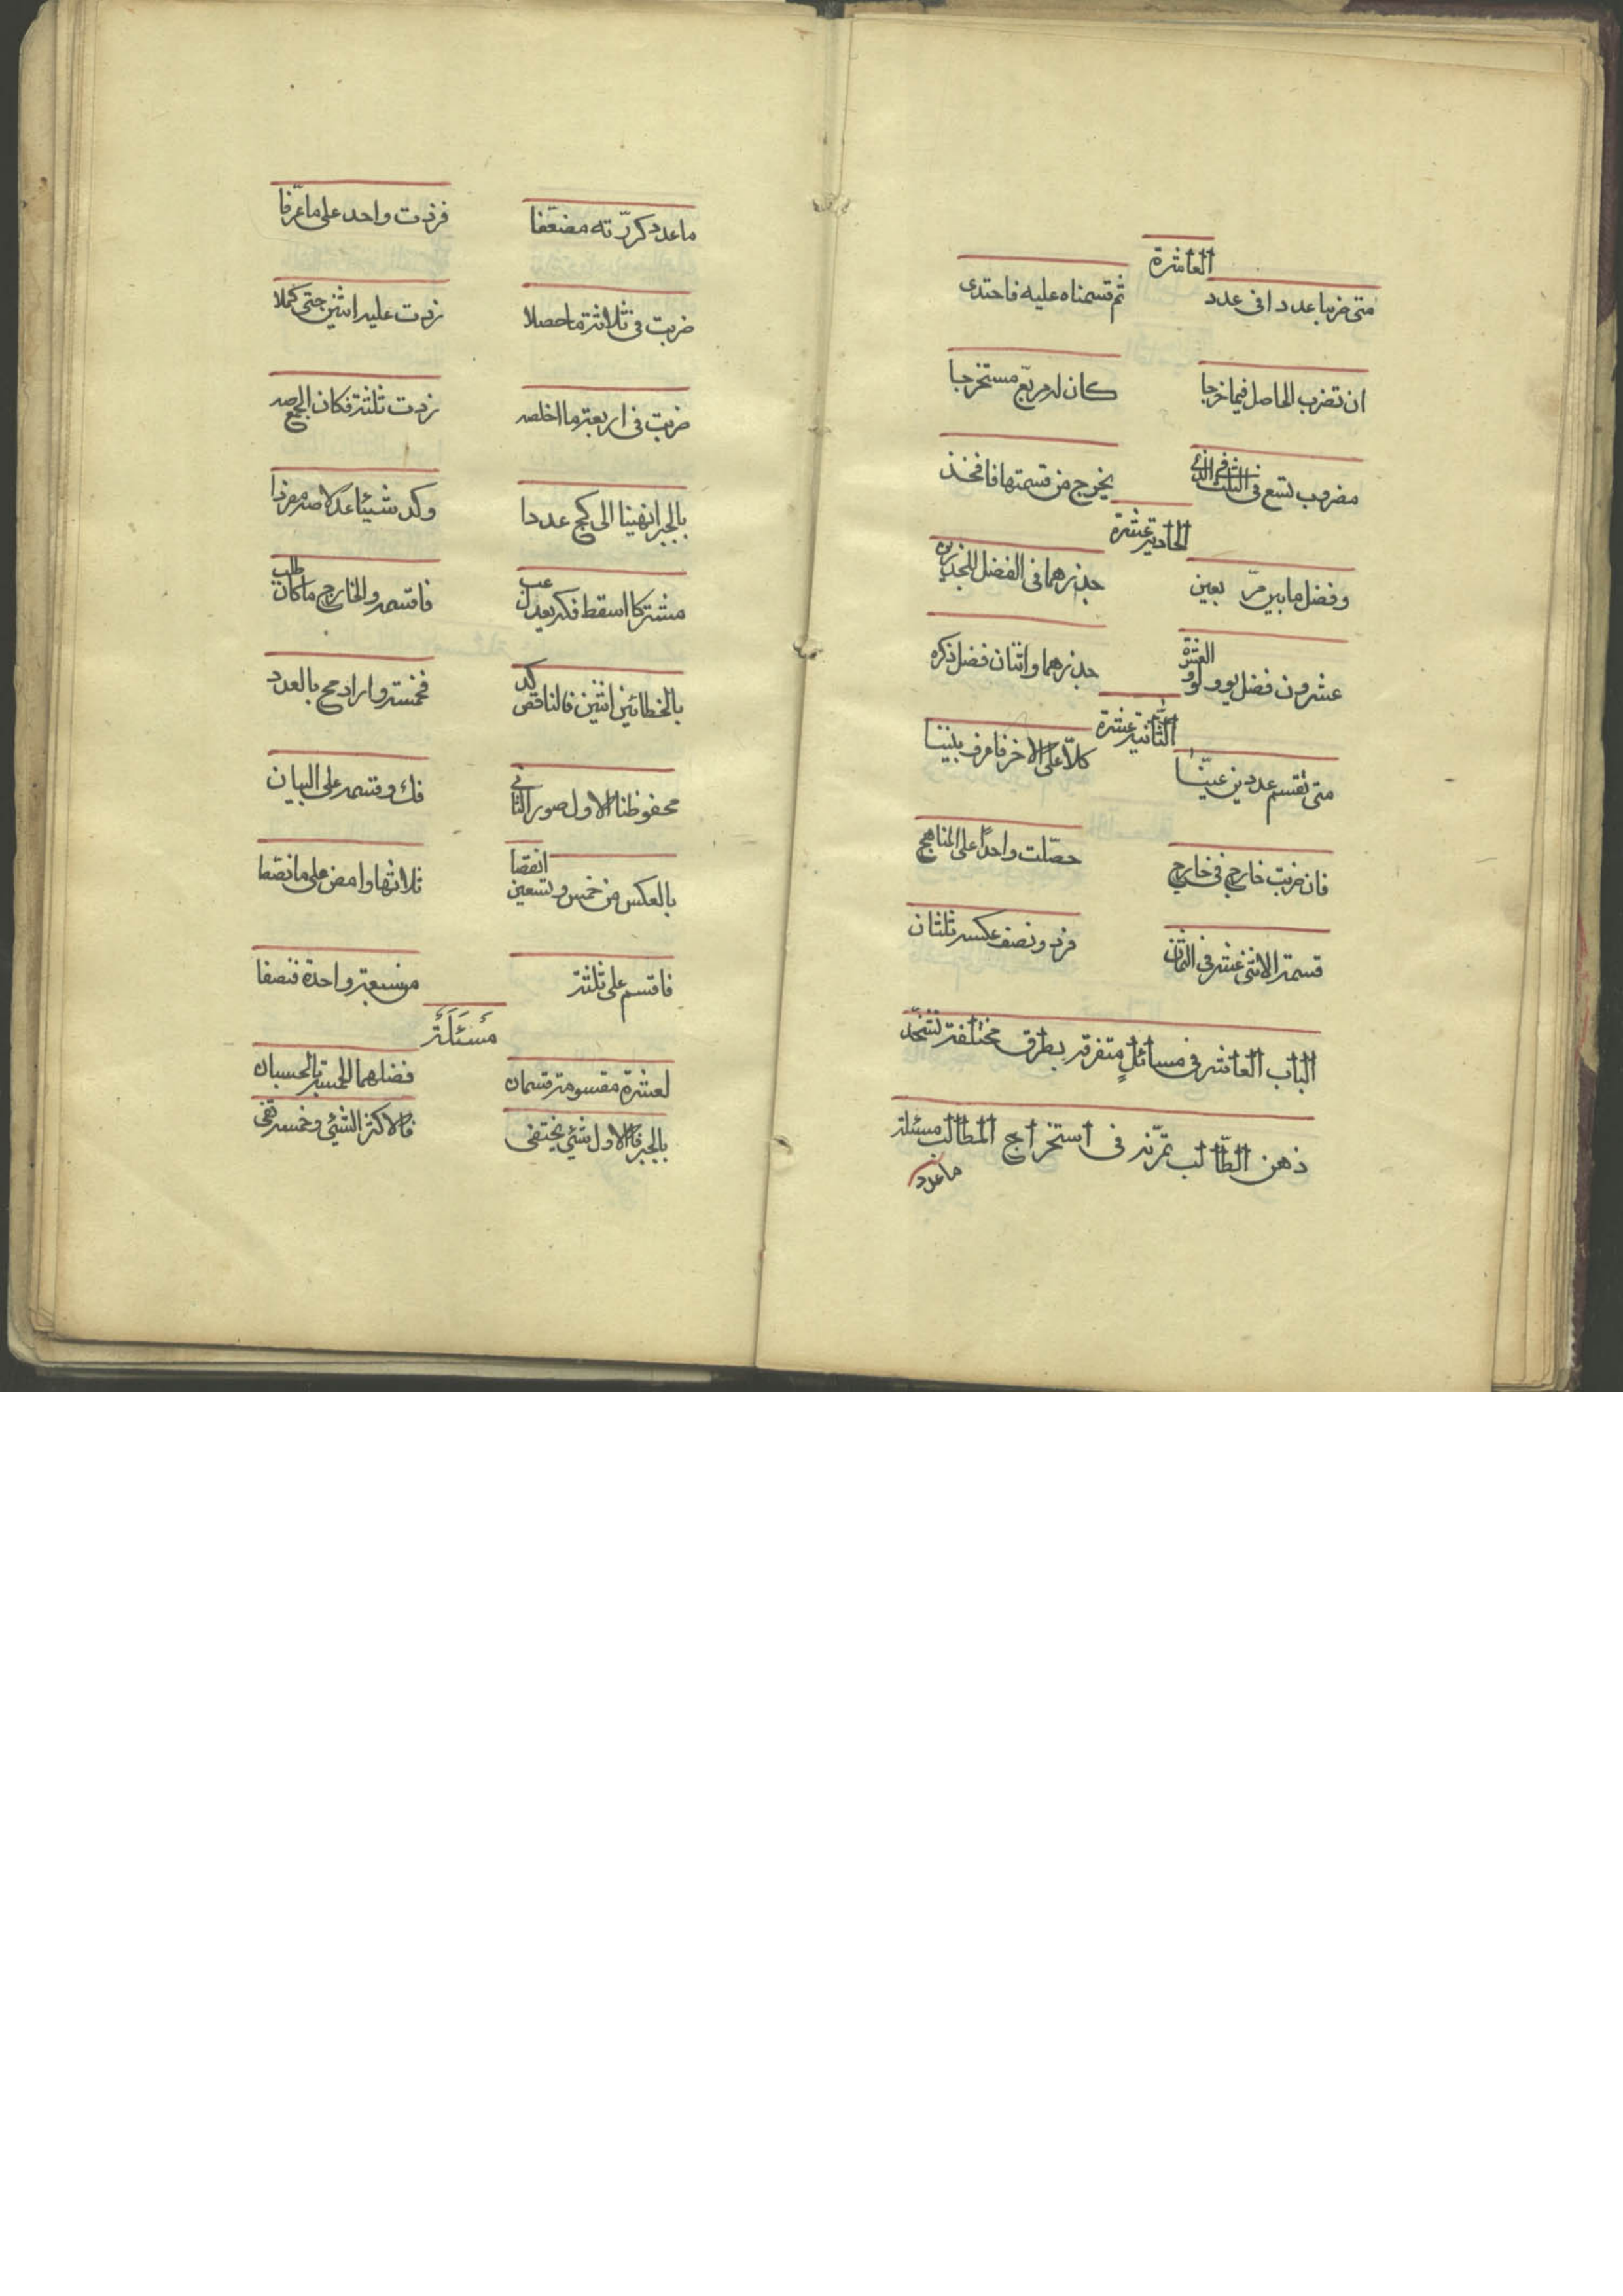 العاشرة
متى ضربنا عددا في عدد ثم قسمناه عليه فاحتدى
ان تضرب الحاصل فيما خرجا كان له مربع مستخرجا
مضروب تسع في الثلث يخرج من قسمتها فافخذ
الحادية عشرة
وفضل ما بين مربعين جذرهما في الفضل للجذرين
عشرون فضل يو ولو العشرة جذرهما واثنان فضل ذكره
الثانية عشرة
متى تقسم عددين عينا كلا على الاخر فاعرف بيننا
فان ضربت خارج في خارج حصلت واحدا على المناهج
قسمة الاثنى عشر في الثمان فرد ونصف عكسه ثلثان
الباب العاشر في مسائل متفرقه بطرق مختلفة تشحذ
ذهن الطالب تمرنه في استخراج المطالب مسئلة
ما عدد
ما عدد كررته مضعفا فزدت واحد على ما عرفا
ضربت في ثلاثة ما حصلا زدت عليه اثنين حتى كملا
ضربت في اربعة ما اخلصه زدت ثلثة فكان الجمع صه
بالجبر انهينا الى كج عددا وكد شيئا عدلا صه مفردا
مشتركا اسقط فكد يعدل عب فاقسمه والخارج ما كان طلب
بالخطائين اثنين فالناقص كد فخمسة وازاد مح بالعدد
محفوظنا الاول صور الثاني فك وقسمه على البيان
بالعكس من خمس وتسعين انقصا ثلاثها وامض على ما نصصا
فاقسم على ثلثة من سبعة واحدة فنصفا
مسئلة
لعشرة مقسومة قسمان فضلهما الخمسة بالحسبان
بالجبر فالاول شئي يختفى فالاكثر الشئي وخمسة تفى